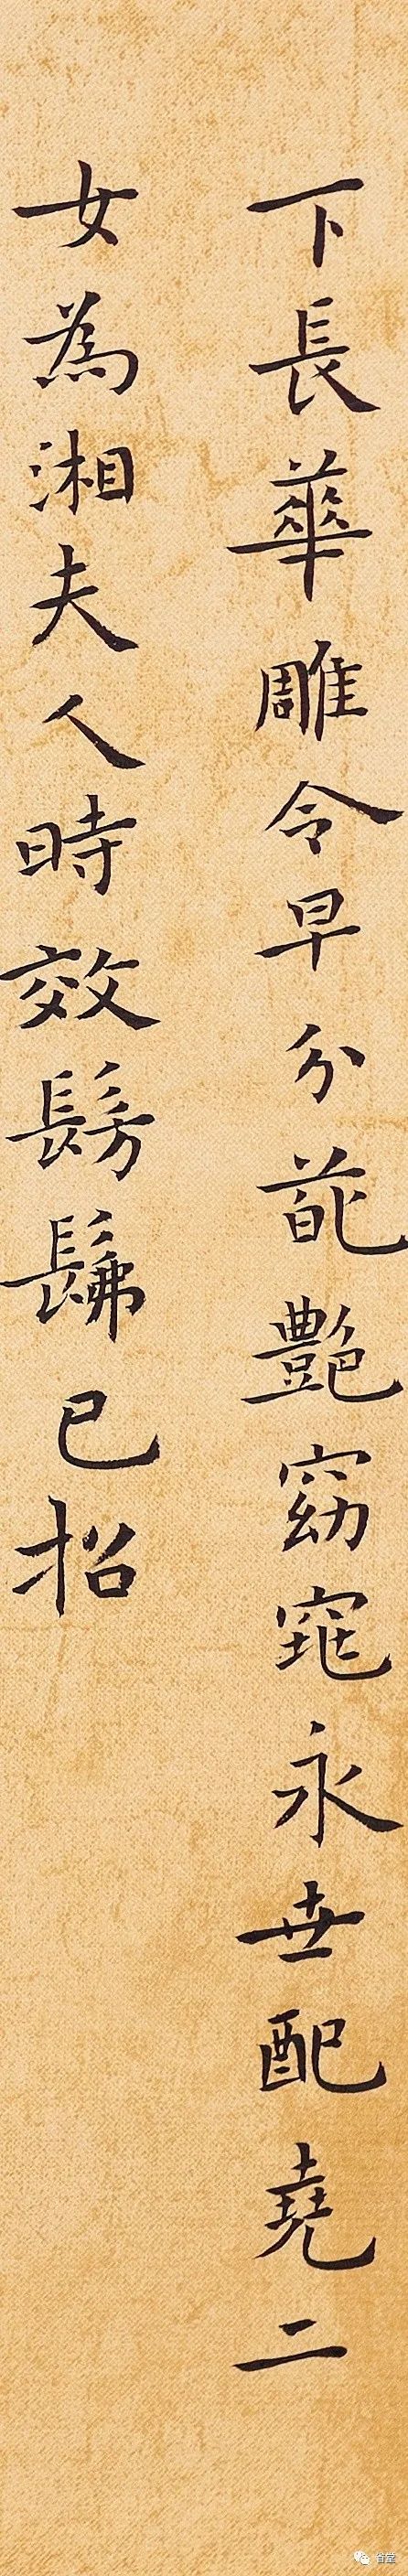 下長華雕令早分葩艷窈窕永世配堯二
女為湘夫人時效髣髴已招